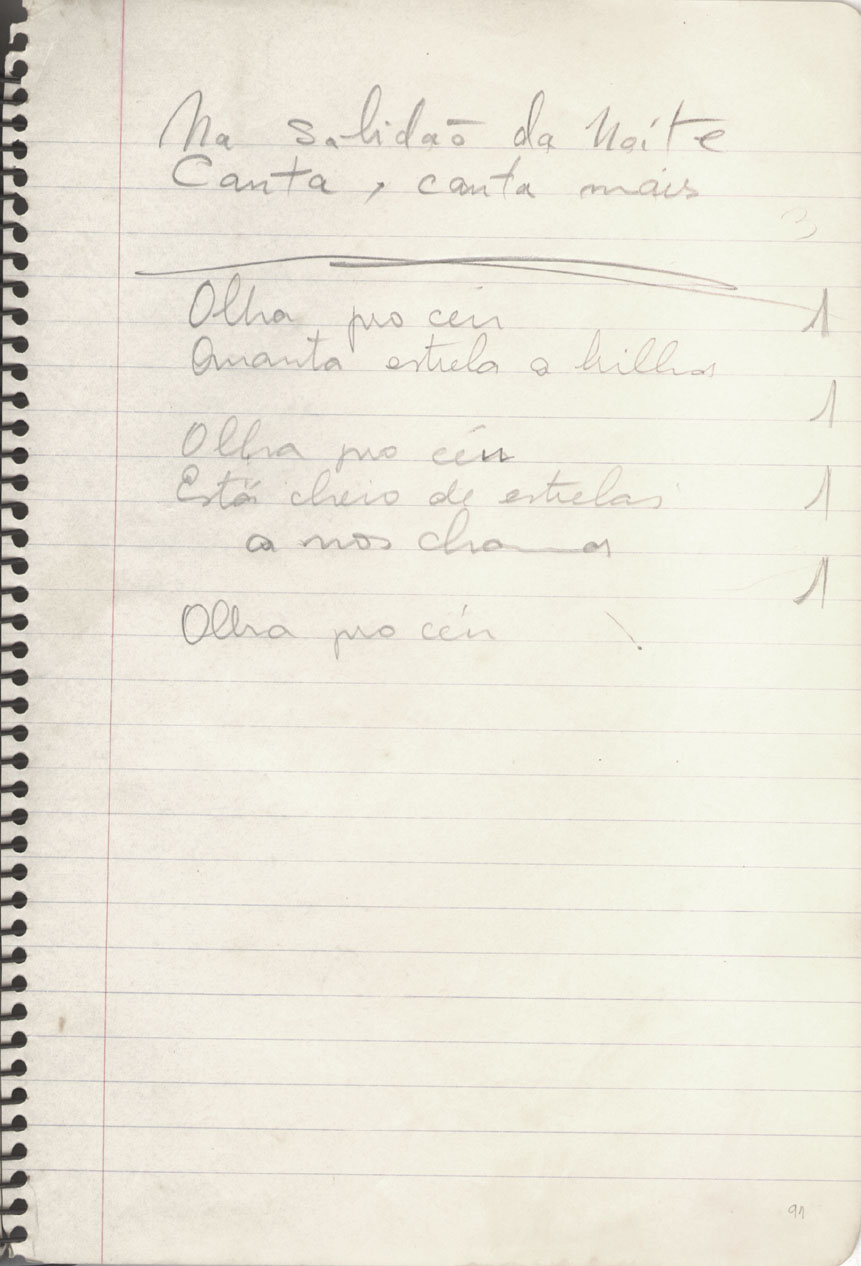 Na solidão da Noite
Canta, canta mais
Olha pro céu
Quanta estrela a brilhar
Olha pro céu
Está cheio de estrelas
a nos chamar
Olha pro céu
1
1
1
1
91